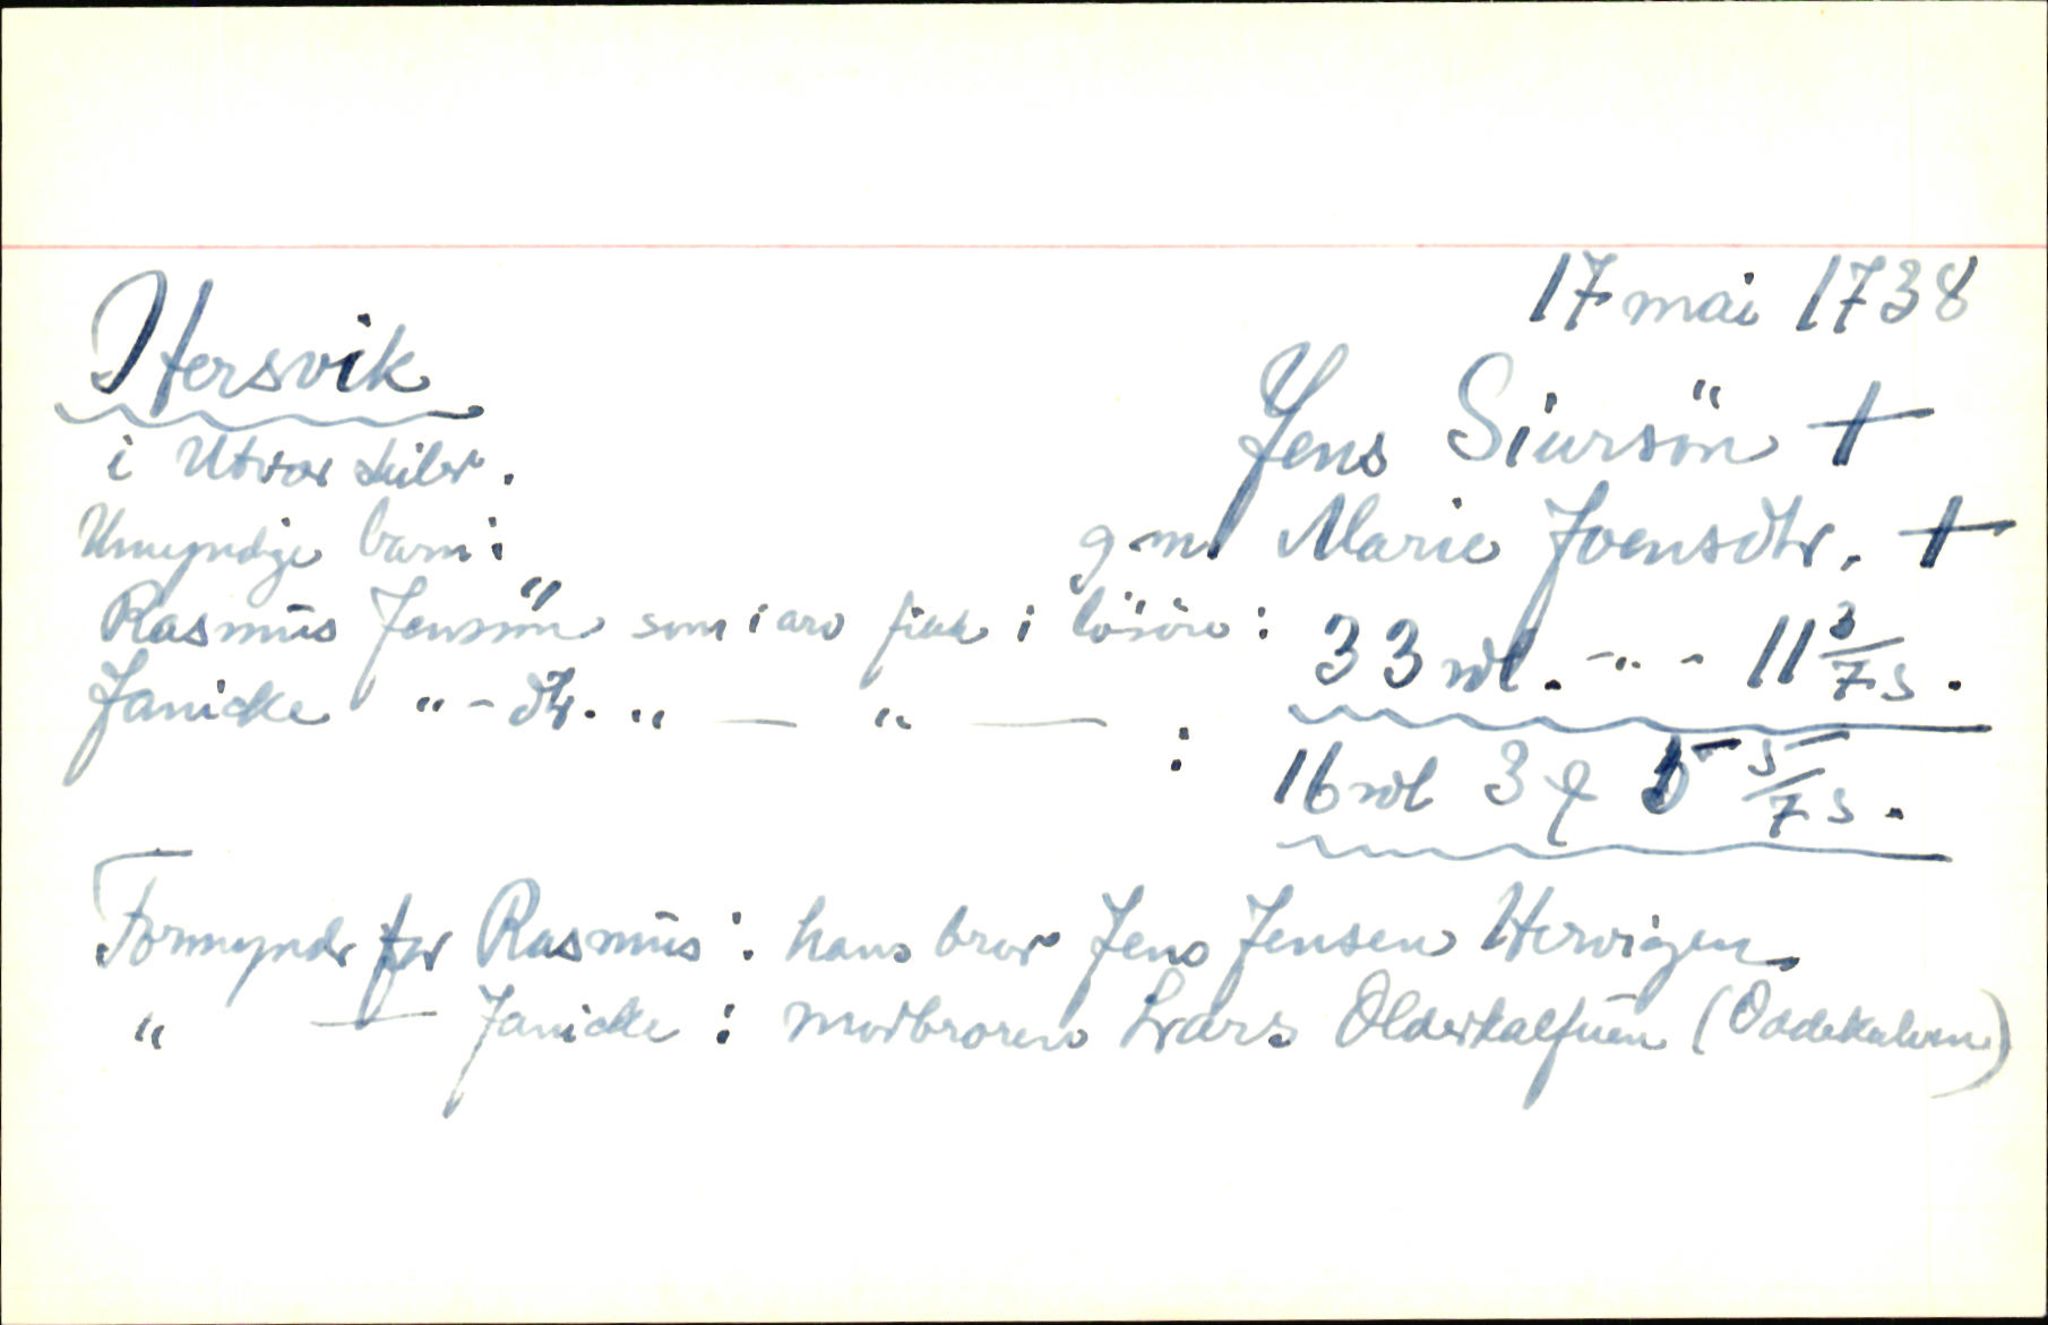 17 mai 1738
Hersvik
Jens Siursön +
i Utvær skibr.
gm Marie Joensdtr. +
Umyndige barn:
Rasmus Jensön som i arv fikk i lösöre: 33 rdl. - " - 11 3/7 s.
Janicke " - dtr. " — " — : 16 rdl 3 ꝗ 5 5/7 s.
Formyndr for Rasmus: hans bror Jens Jensen Hervigen
" — Janicke: morbroren Lars Olderkalfuen (Oddekalven)